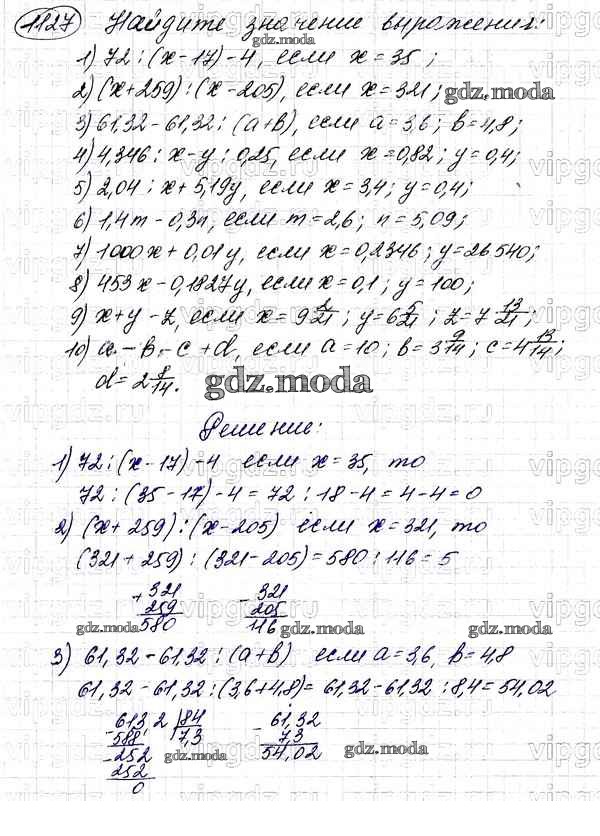 1127 Найдите значение выражения:
gdz.moda
1) 72 : (x-17) - 4, если x = 35;
2) (x+259) : (x-205), если x = 321;
gdz.moda
3) 61,32 - 61,32 : (a+b), если a = 3,6; b = 4,8;
4) 4,346 : x - y : 0,25, если x = 0,82; y = 0,4;
5) 2,04 : x + 5,19y, если x = 3,4; y = 0,4;
6) 1,4m - 0,3n, если m = 2,6; n = 5,09;
7) 1000x + 0,01y, если x = 0,2346; y = 26540;
8) 453x - 0,1827y, если x = 0,1; y = 100;
9) x + y - z, если x = 9 2/21; y = 6 5/21; z = 7 13/21;
10) a - b - c + d, если a = 10; b = 3 9/14; c = 4 13/14;
d = 2 8/14.
gdz.moda
Решение:
1) 72 : (x-17) - 4 если x = 35, то
72 : (35-17) - 4 = 72 : 18 - 4 = 4 - 4 = 0
2) (x+259) : (x-205) если x = 321, то
(321+259) : (321-205) = 580 : 116 = 5
+ 321 - 321
259 205
580 116
gdz.moda gdz.moda gdz.moda
3) 61,32 - 61,32 : (a+b) если a = 3,6, b = 4,8
61,32 - 61,32 : (3,6+4,8) = 61,32 - 61,32 : 8,4 = 54,02
- 613,2 | 84 - 61,32
588 7,3 7,3
- 252 54,02
252
0
gdz.moda gdz.moda